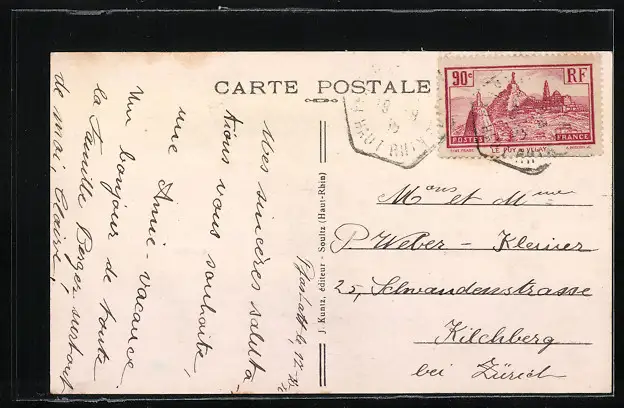 CARTE POSTALE
90c
RF
POSTES
FRANCE
LE PUY EN VELAY
HAUT RHIN
J. Kuntz, éditeur - Soultz (Haut-Rhin)
Mes sincères saluta-
tions vous souhaite,
une Amie - vacance.
Un bonjour de toute
la Famille Berger surtout
de moi, Claire,
Mons et Mme
P. Weber - Kleiner
25, Schwandenstrasse
Kilchberg
bei Zürich